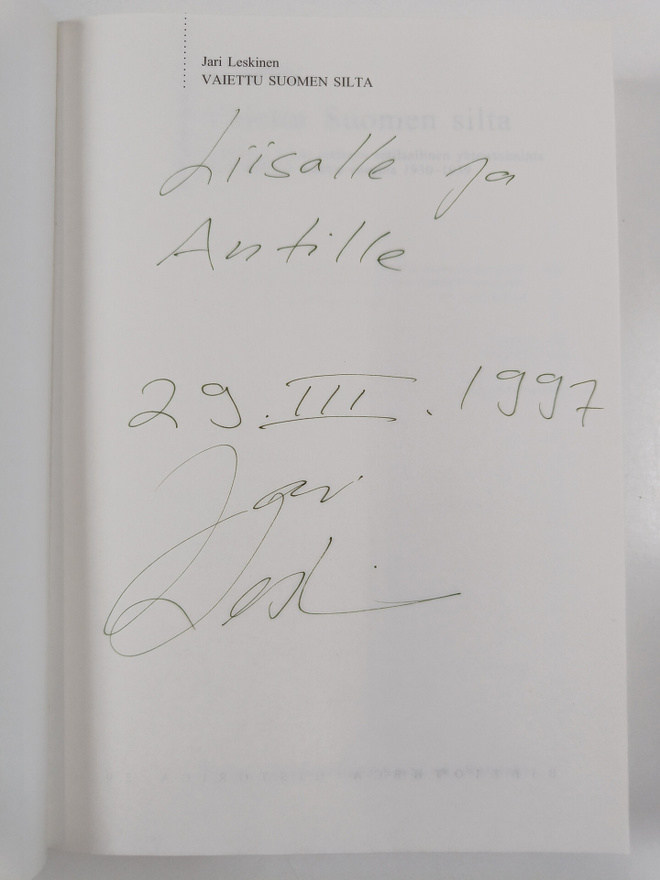 Jari Leskinen
VAIETTU SUOMEN SILTA
Liisalle ja
Antille
29.III.1997
Jari